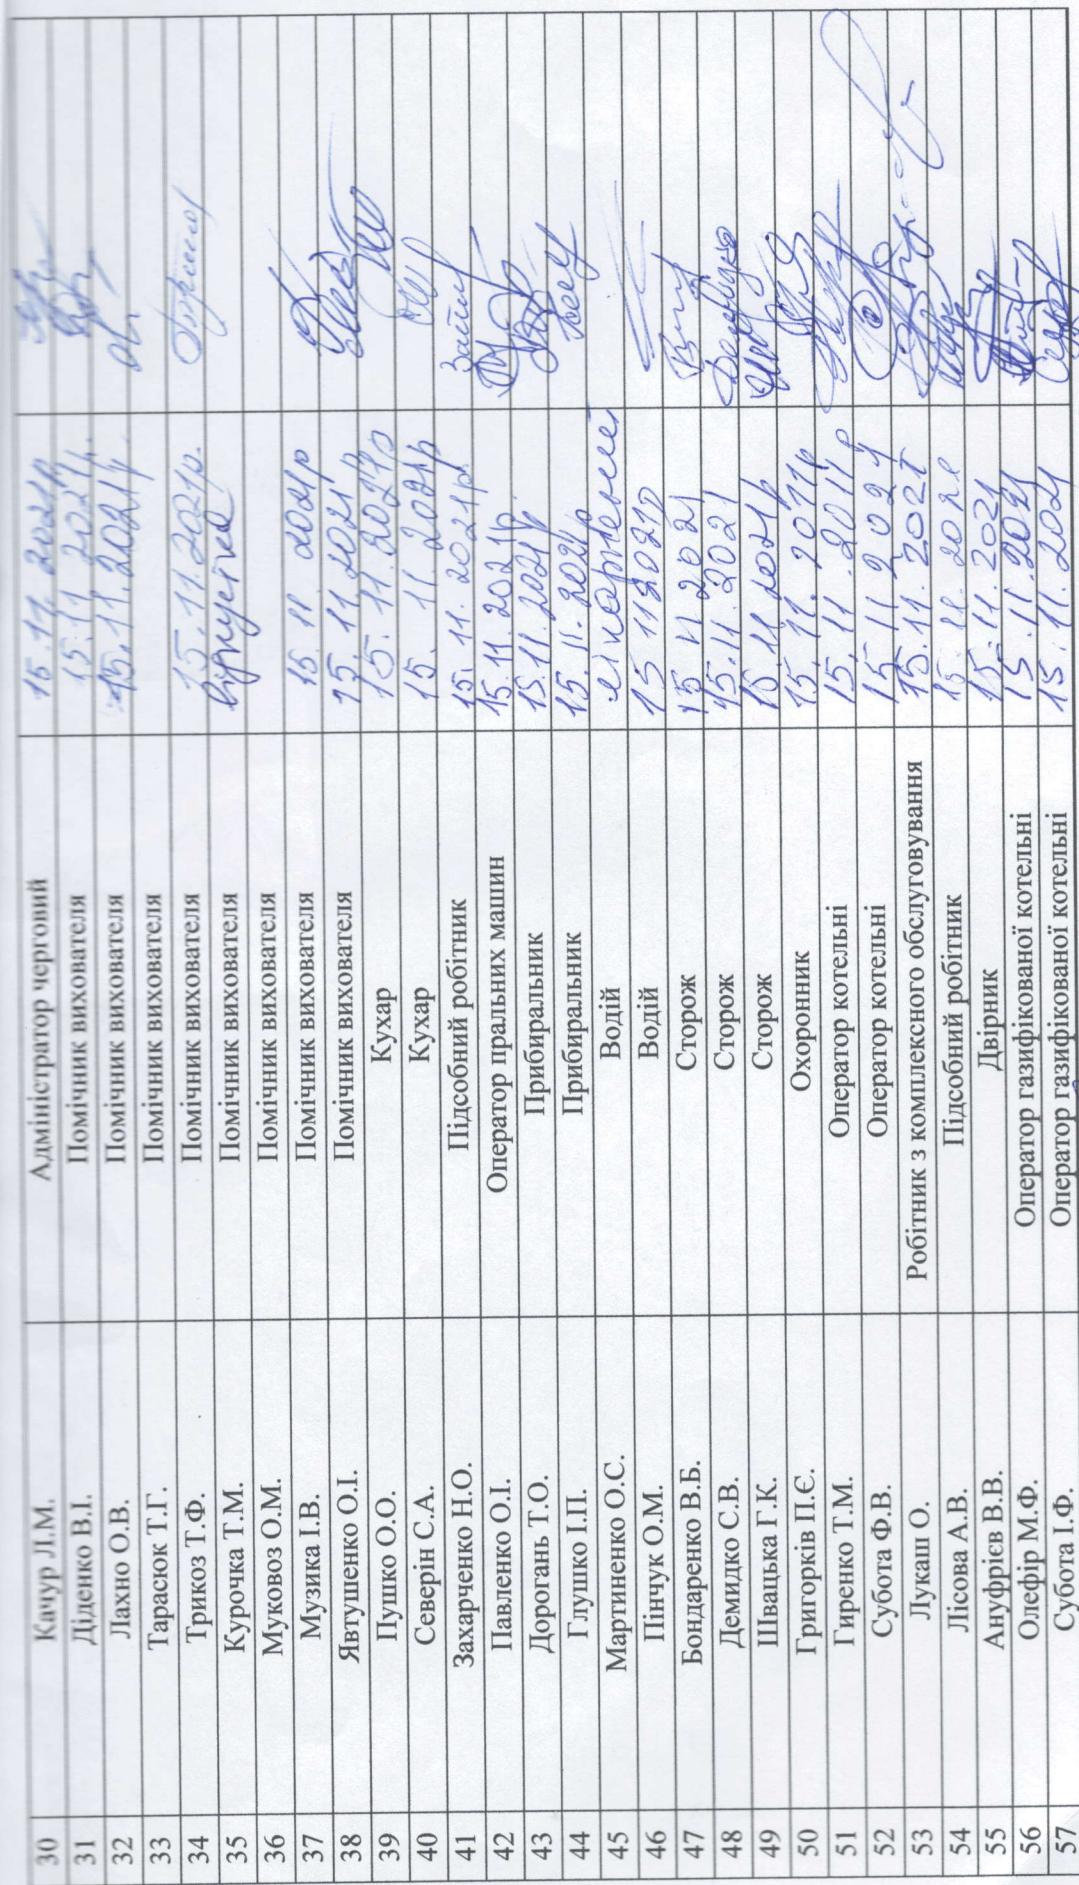 30 Качур Л.М. Адміністратор черговий 15.11.2021р
31 Діденко В.І. Помічник вихователя 15.11.2021р.
32 Лахно О.В. Помічник вихователя 15.11.2021р.
33 Тарасюк Т.Г. Помічник вихователя
34 Трикоз Т.Ф. Помічник вихователя 15.11.2021р.
35 Курочка Т.М. Помічник вихователя відпустка
36 Муковоз О.М. Помічник вихователя
37 Музика І.В. Помічник вихователя 15 11 2021р
38 Явтушенко О.І. Помічник вихователя 15.11 2021р
39 Пушко О.О. Кухар 15.11.2021р
40 Северін С.А. Кухар 15. 11. 2021р
41 Захарченко Н.О. Підсобний робітник 15.11.2021р.
42 Павленко О.І. Оператор пральних машин 15.11.2021р
43 Дорогань Т.О. Прибиральник 15.11.2021р
44 Глушко І.П. Прибиральник 15.11.2021р
45 Мартиненко О.С. Водій
46 Пінчук О.М. Водій
47 Бондаренко В.Б. Сторож 15 11 2021
48 Демидко С.В. Сторож 15.11.2021
49 Швацька Г.К. Сторож 15.11 2021р
50 Григорків П.Є. Охоронник
51 Гиренко Т.М. Оператор котельні
52 Субота Ф.В. Оператор котельні
53 Лукаш О. Робітник з комплексного обслуговування 15.11.2021
54 Лісова А.В. Підсобний робітник 15.11.2021
55 Ануфрієв В.В. Двірник 15.11.2021
56 Олефір М.Ф. Оператор газифікованої котельні 15.11.2021
57 Субота І.Ф. Оператор газифікованої котельні 15.11.2021